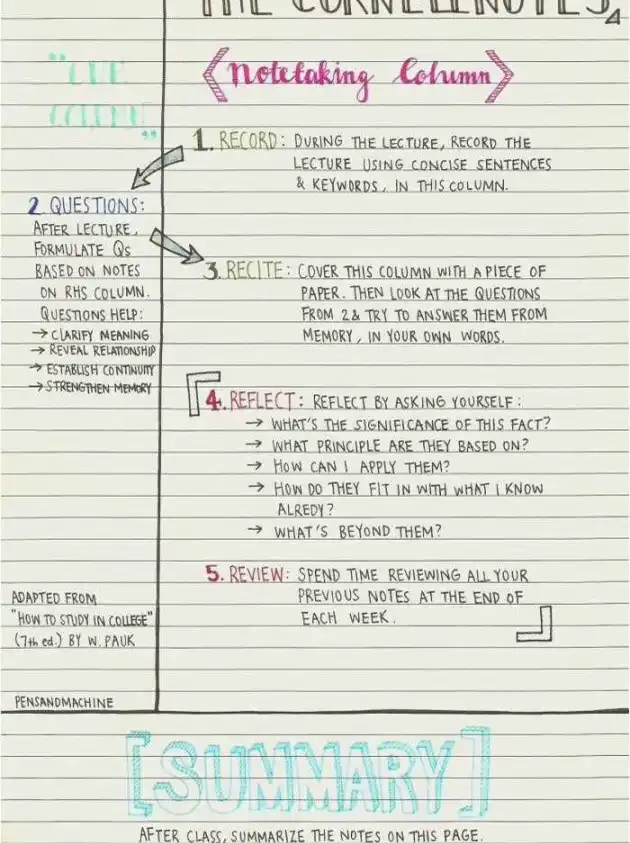 THE CORNELL NOTES
"CUE
COLUMN"
Notetaking Column
1. RECORD: DURING THE LECTURE, RECORD THE
LECTURE USING CONCISE SENTENCES
& KEYWORDS, IN THIS COLUMN.
2. QUESTIONS:
AFTER LECTURE,
FORMULATE Qs
BASED ON NOTES
ON RHS COLUMN.
QUESTIONS HELP:
→ CLARIFY MEANING
→ REVEAL RELATIONSHIP
→ ESTABLISH CONTINUITY
→ STRENGTHEN MEMORY
3. RECITE: COVER THIS COLUMN WITH A PIECE OF
PAPER. THEN LOOK AT THE QUESTIONS
FROM 2 & TRY TO ANSWER THEM FROM
MEMORY, IN YOUR OWN WORDS.
4. REFLECT: REFLECT BY ASKING YOURSELF:
→ WHAT'S THE SIGNIFICANCE OF THIS FACT?
→ WHAT PRINCIPLE ARE THEY BASED ON?
→ HOW CAN I APPLY THEM?
→ HOW DO THEY FIT IN WITH WHAT I KNOW
ALREDY?
→ WHAT'S BEYOND THEM?
5. REVIEW: SPEND TIME REVIEWING ALL YOUR
PREVIOUS NOTES AT THE END OF
EACH WEEK.
ADAPTED FROM
"HOW TO STUDY IN COLLEGE"
(7th ed.) BY W. PAUK
PENSANDMACHINE
[SUMMARY]
AFTER CLASS, SUMMARIZE THE NOTES ON THIS PAGE.